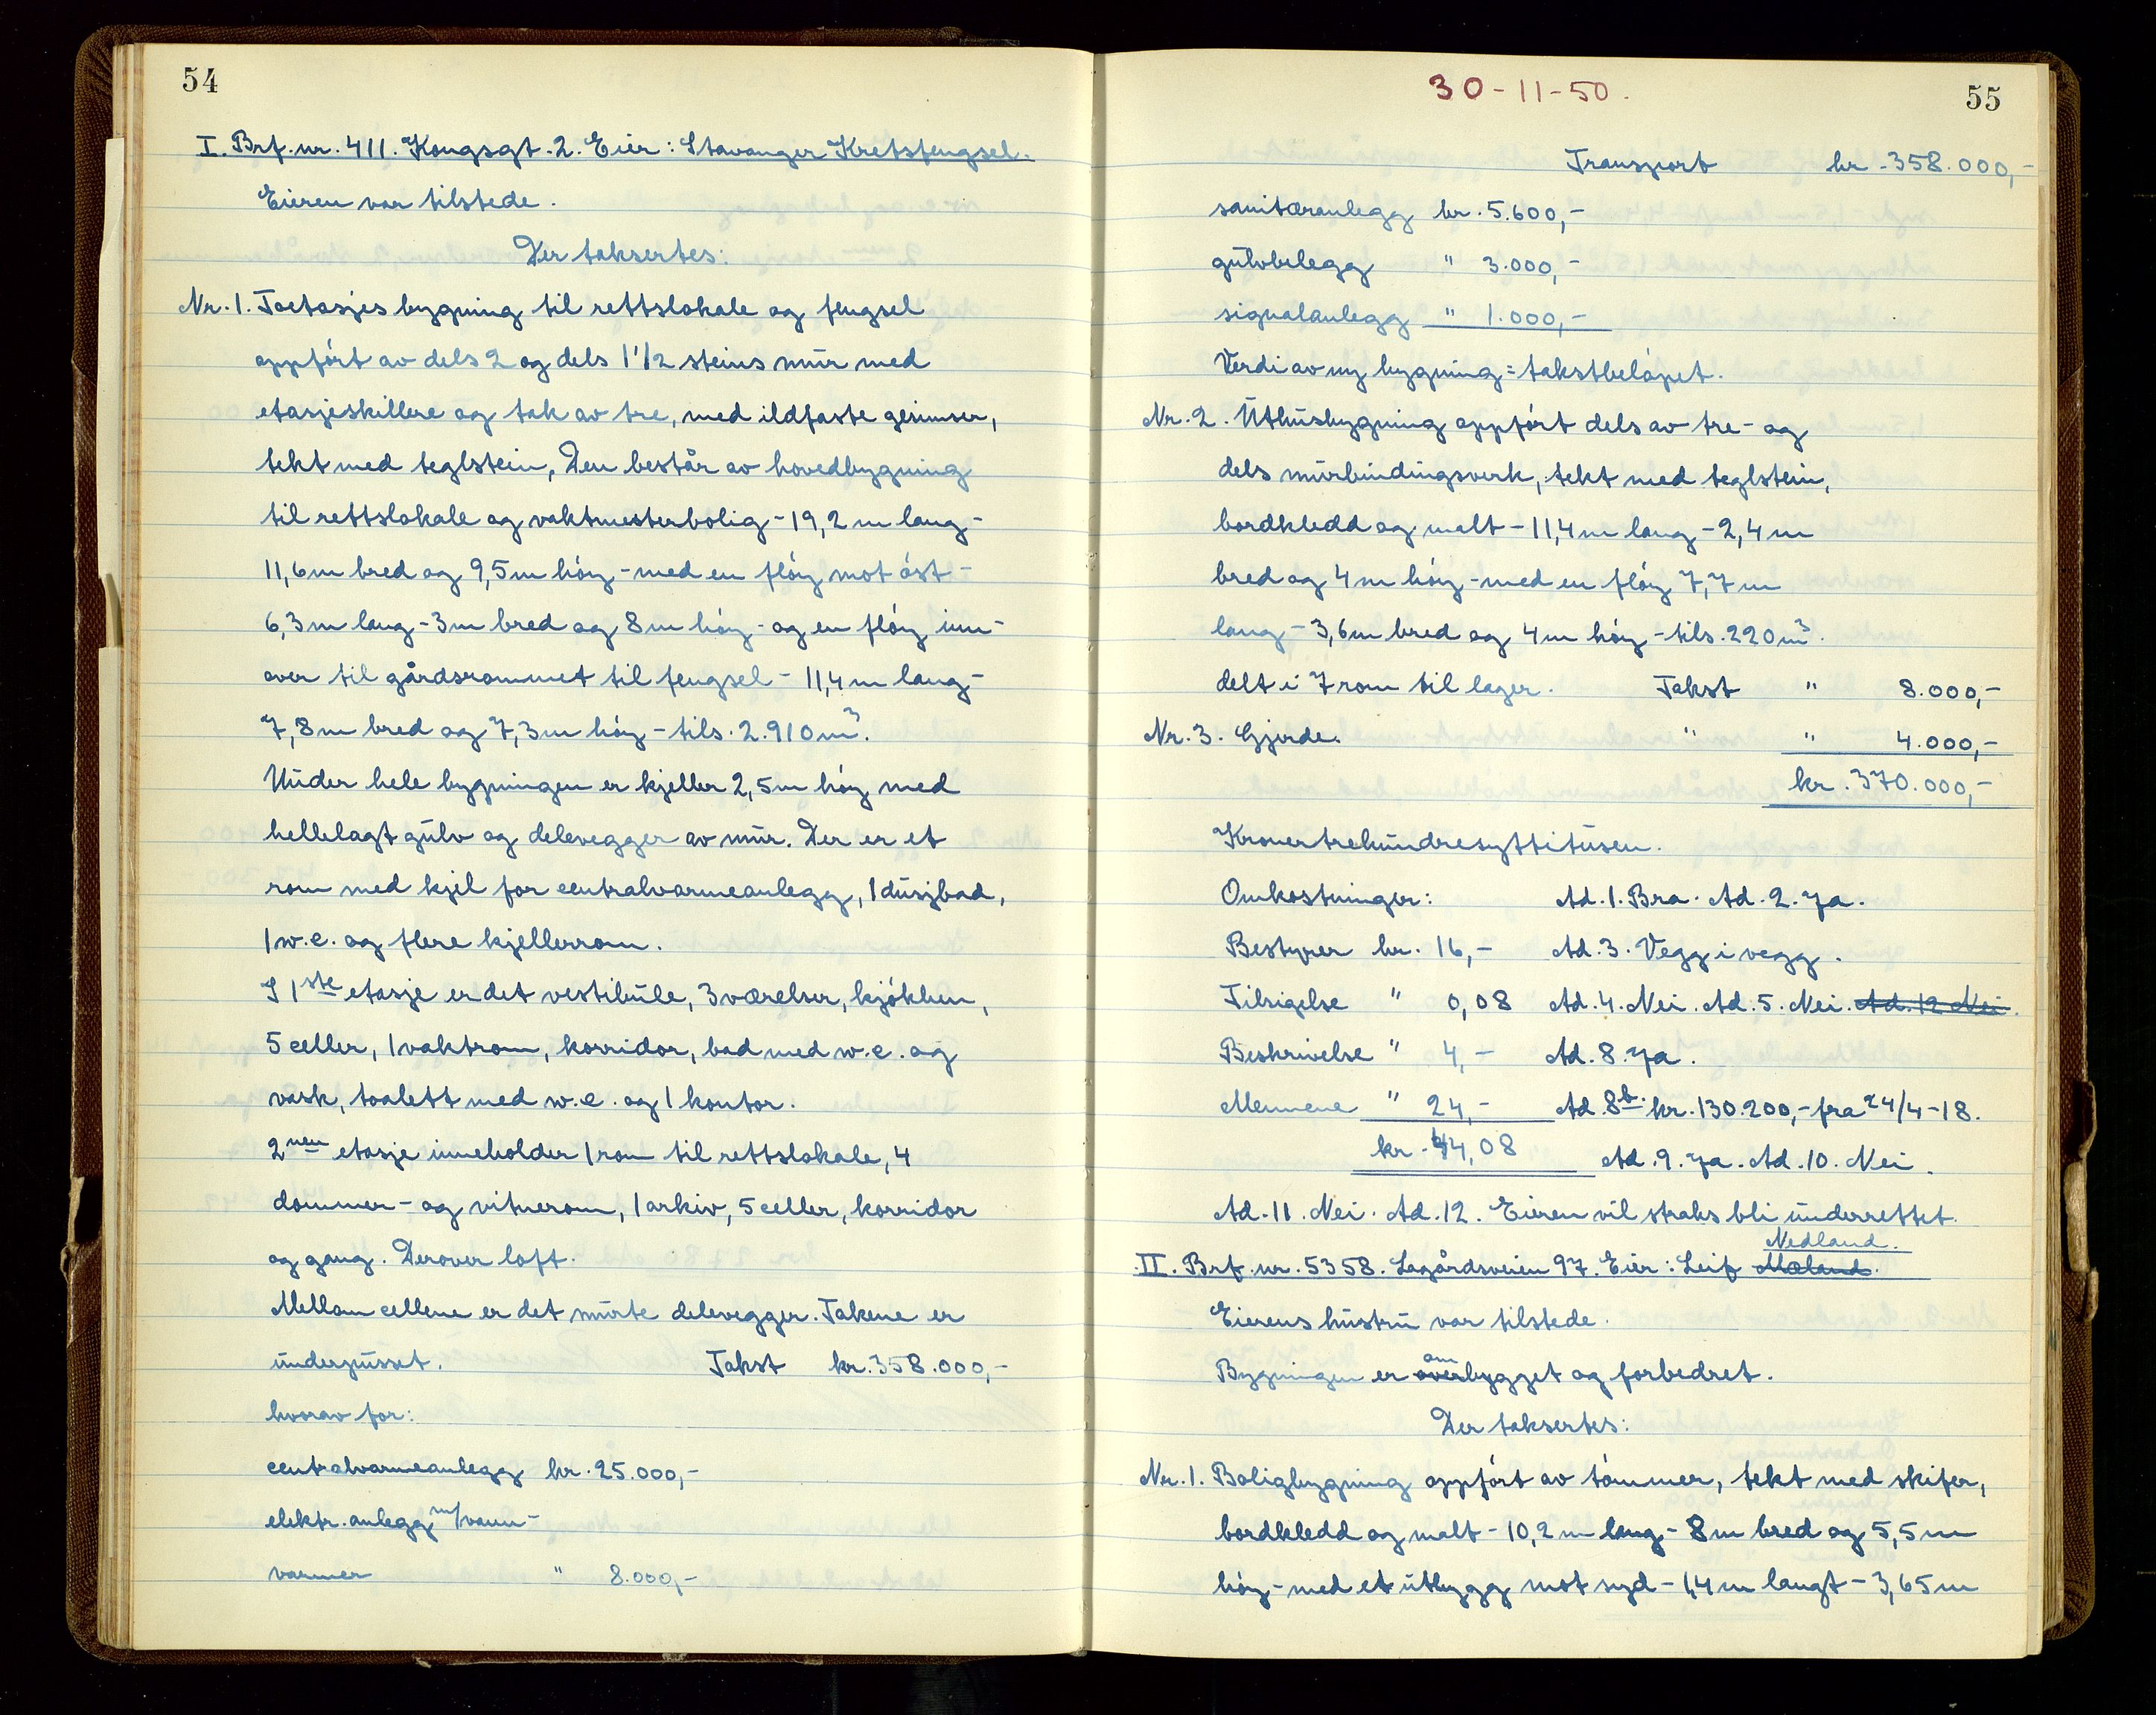 54
I. Brf. nr. 411. Kongsgt. 2. Eier: Stavanger Kretsfengsel.
Eieren var tilstede.
Der taksertes:
Nr. 1. Toetasjes bygning til rettslokale og fengsel
oppført av dels 2 og dels 1 1/2 steins mur med
etasjeskillere og tak av tre, med ildfaste gesimser,
tekt med teglstein, Den består av hovedbygning
til rettslokale og vaktmesterbolig - 19,2 m lang -
11,6 m bred og 9,5 m høy - med en fløy mot øst -
6,3 m lang - 3 m bred og 8 m høy - og en fløy inn-
over til gårdsrommet til fengsel - 11,4 m lang -
7,8 m bred og 7,3 m høy - tils. 2.910 m³.
Under hele bygningen er kjeller 2,5 m høy med
hellelagt gulv og delevegger av mur. Der er et
rom med kjel for centralvarmeanlegg, 1 dusjbad,
1 w.c. og flere kjellerrom.
I 1ste etasje er det vestibule, 3 værelser, kjøkken,
5 celler, 1 vaktrom, korridor, bad med w.c. og
vask, toalett med w.c. og 1 kontor.
2nen etasje inneholder 1 rom til rettslokale, 4
dommer- og vitnerom, 1 arkiv, 5 celler, korridor
og gang. Derover loft.
Mellom cellene er det murte delevegger. Takene er
underpusset. Takst kr. 358.000,-
hvorav for:
centralvarmeanlegg kr. 25.000,-
elektr. anlegg m/vann-
varmer " 8.000,-
30-11-50.
55
Transport kr. 358.000,-
sanitæranlegg kr. 5.600,-
gulvbelegg " 3.000,-
signalanlegg " 1.000,-
Verdi av ny bygning = takstbeløpet.
Nr. 2. Uthusbygning oppført dels av tre- og
dels murbindingsverk, tekt med teglstein,
bordkledd og malt - 11,4 m lang - 2,4 m
bred og 4 m høy - med en fløy 7,7 m
lang - 3,6 m bred og 4 m høy - tils. 220 m³.
delt i 7 rom til lager. Takst " 8.000,-
Nr. 3. Gjerde. " " 4.000,-
kr. 370.000,-
Kroner trehundresyttitusen.
Omkostninger: Ad. 1. Bra. Ad. 2. Ja.
Bestyrer kr. 16,- Ad. 3. Vegg i vegg.
Tilsigelse " 0,08 Ad. 4. Nei. Ad. 5. Nei. Ad. 12 Nei.
Beskrivelse " 4,- Ad. 8. Ja.
Mennene " 24,- Ad. 8b. kr. 130.200,- fra 24/4-18.
kr. 44,08 Ad. 9. Ja. Ad. 10. Nei.
Ad. 11. Nei. Ad. 12. Eieren vil straks bli underrettet.
Nedland.
II. Brf. nr. 5358. Lagårdsveien 97. Eier: Leif Mæland.
Eierens hustru var tilstede.
om
Bygningen er overbygget og forbedret.
Der taksertes:
Nr. 1. Boligbygning oppført av tømmer, tekt med skifer,
bordkledd og malt - 10,2 m lang - 8 m bred og 5,5 m
høy - med et utbygg mot syd - 1,4 m langt - 3,65 m